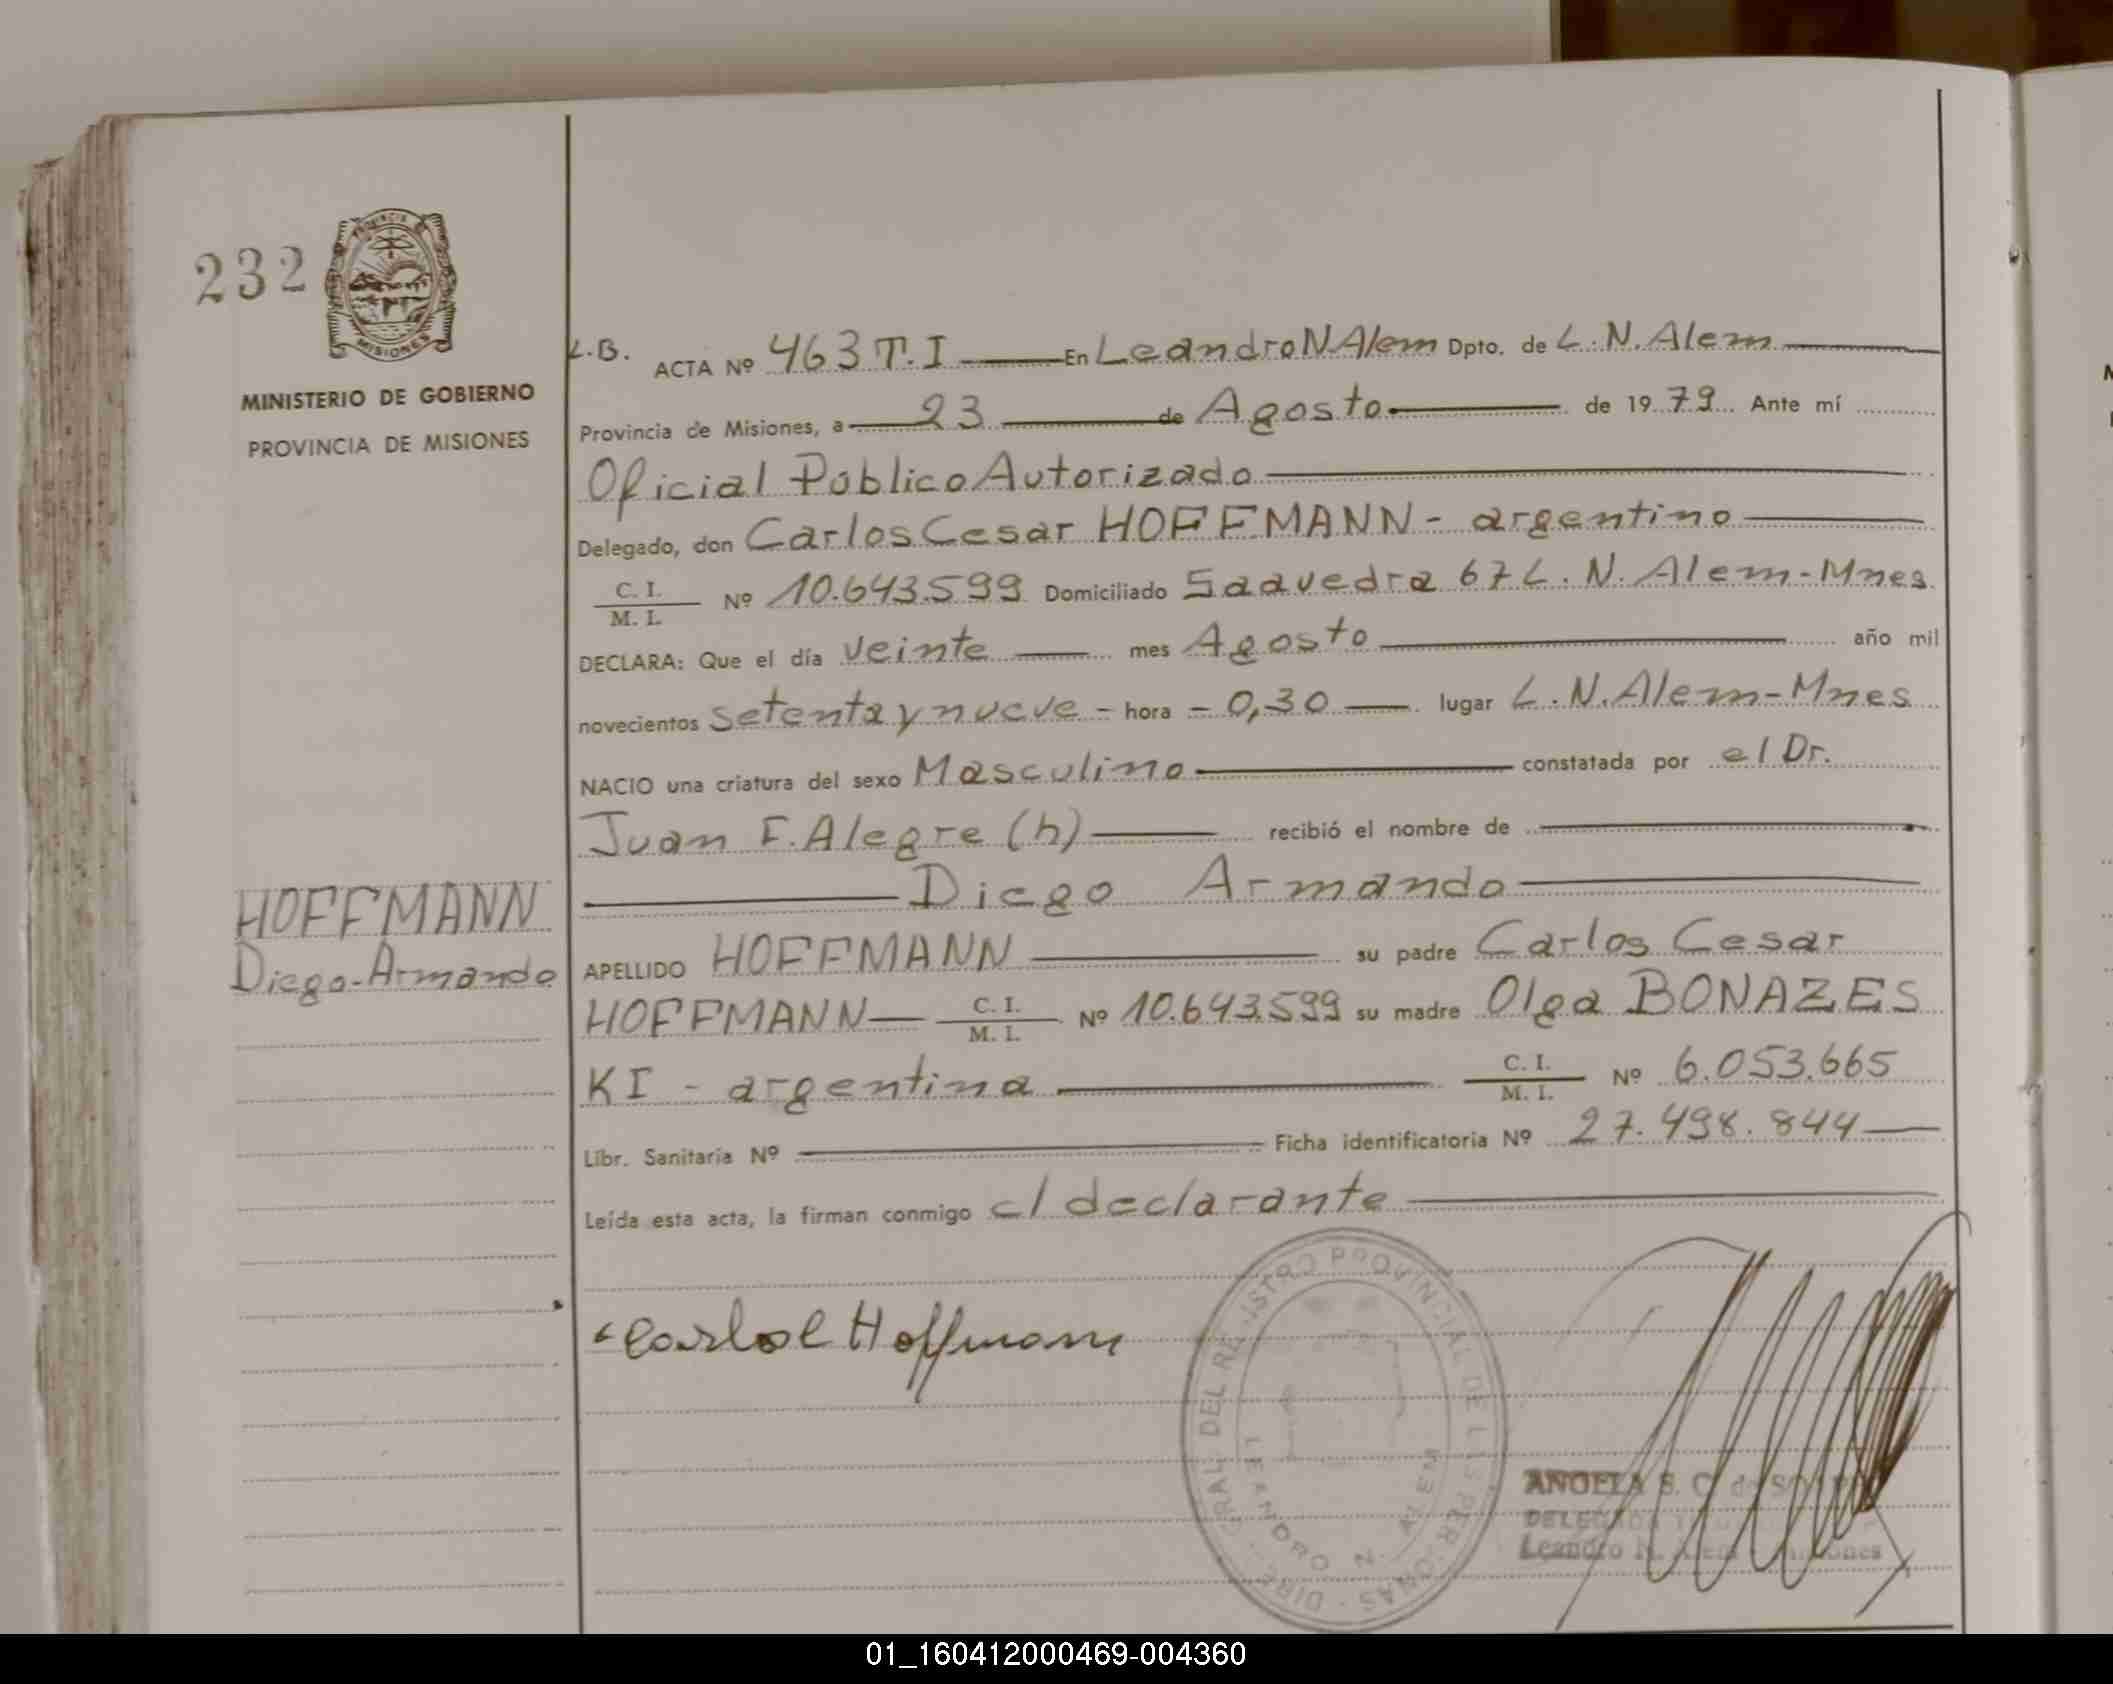 232
PROVINCIA
MISIONES
MINISTERIO DE GOBIERNO
PROVINCIA DE MISIONES
HOFFMANN
Diego-Armando
L.B. ACTA Nº 463 T.I En Leandro N Alem Dpto. de L.N.Alem
Provincia de Misiones, a 23 de Agosto de 1979 Ante mí
Oficial Público Autorizado
Delegado, don Carlos Cesar HOFFMANN - argentino
C. I. / M. I. Nº 10.643.599 Domiciliado Saavedra 67 L.N.Alem-Mnes
DECLARA: Que el día veinte mes Agosto año mil
novecientos setenta y nueve - hora - 0,30 lugar L.N.Alem-Mnes
NACIO una criatura del sexo Masculino constatada por el Dr.
Juan F. Alegre (h) recibió el nombre de
Diego Armando
APELLIDO HOFFMANN su padre Carlos Cesar
HOFFMANN C. I. / M. I. Nº 10.643.599 su madre Olga BONAZES
KI - argentina C. I. / M. I. Nº 6.053.665
Libr. Sanitaria Nº Ficha identificatoria Nº 27.498.844
Leída esta acta, la firman conmigo el declarante
Carlos C Hoffmann
DIRE. GRAL. DEL REGISTRO PROVINCIAL DE LAS PERSONAS
LEANDRO N. ALEM
ANGELA S. C. de
DELEGADA
Leandro N. Alem - Misiones
01_160412000469-004360